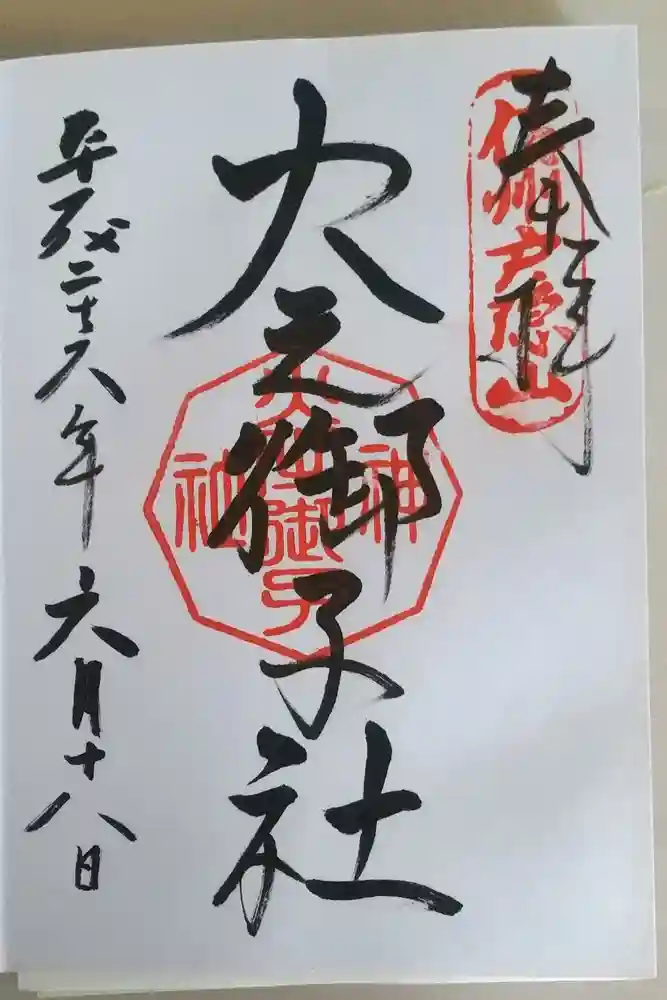 奉拝
信州戸隠山
火之御子社
火之御子神社
平成二十八年六月十八日